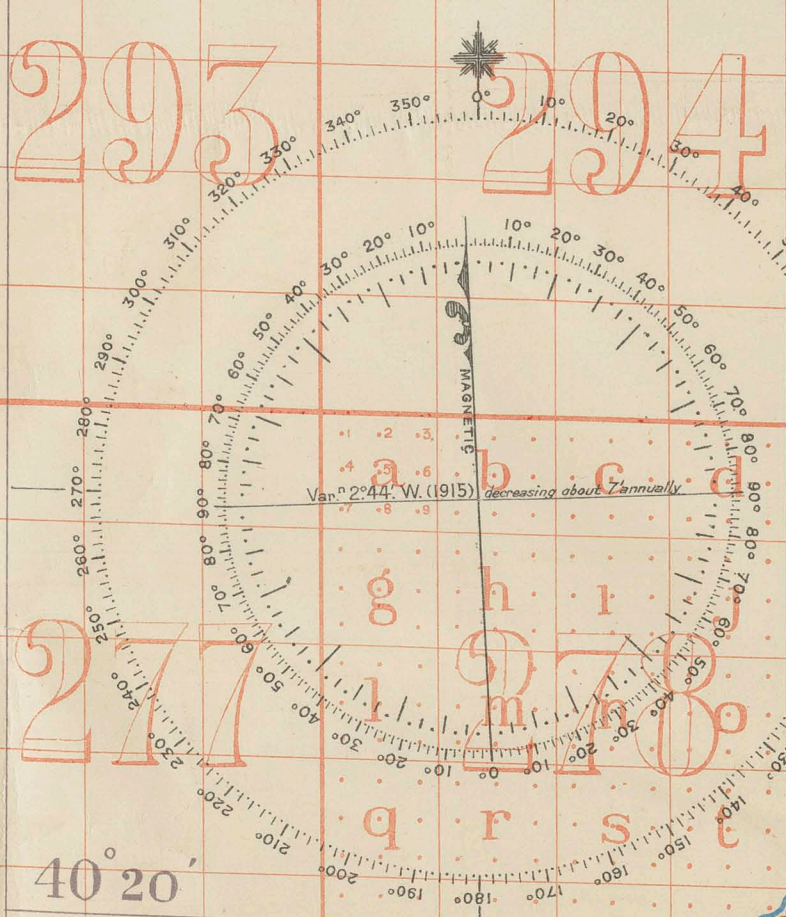 293
294
0°
10°
20°
30°
40°
350°
340°
330°
320°
310°
300°
290°
280°
270°
260°
250°
240°
230°
220°
210°
200°
190°
180°
170°
160°
150°
140°
10°
20°
30°
40°
50°
60°
70°
80°
90°
80°
70°
60°
50°
40°
30°
20°
10°
0°
10°
20°
30°
40°
50°
60°
70°
80°
90°
80°
70°
60°
50°
40°
30°
20°
10°
MAGNETIC
1 2 3
4 5 6
7 8 9
a b c d
Var.n 2°44'. W. (1915) decreasing about 7' annually
g h i j
277
278
l m n o
q r s t
40°20'